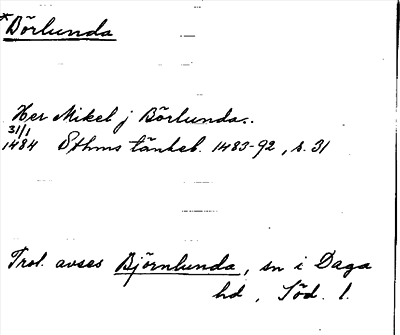 *Börlunda
Her Mikel j Börlunda.
31/1
1484 Sthms tänkeb. 1483-92, s. 31
Trol. avses Björnlunda, sn i Daga
hd, Söd. l.